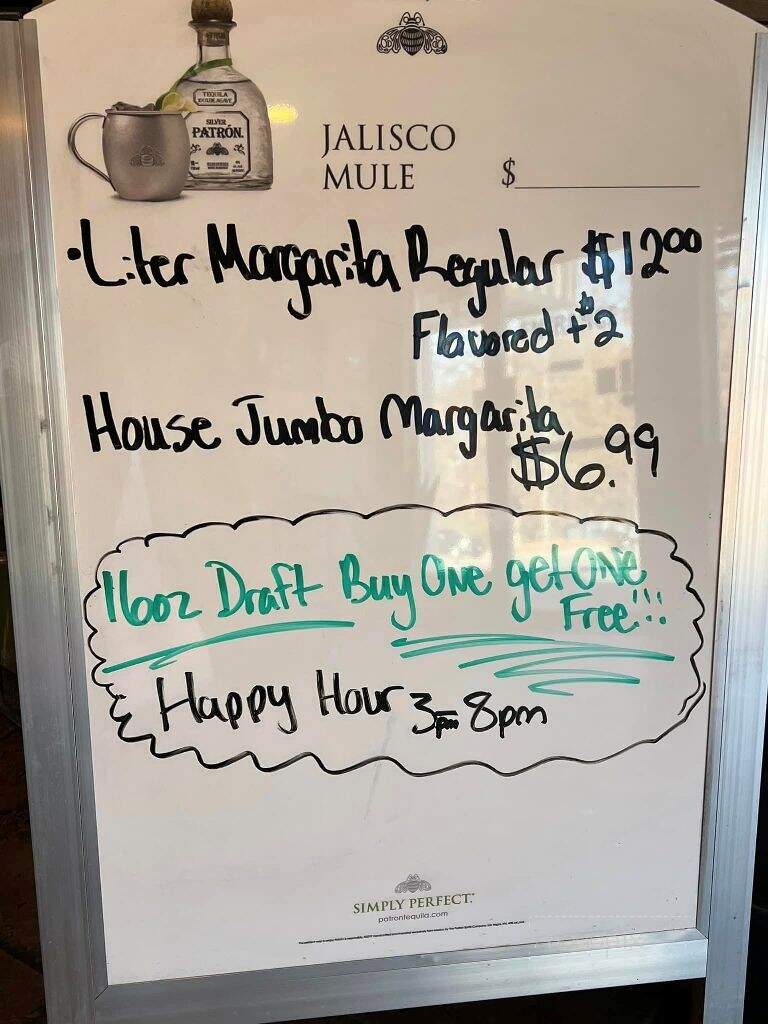 TEQUILA
SILVER
PATRÓN.
JALISCO
MULE $
•Liter Margarita Regular $12.00
Flavored +$2
House Jumbo Margarita
$6.99
16oz Draft Buy One get ONE
Free!!!
Happy Hour 3pm-8pm
SIMPLY PERFECT.
patrontequila.com